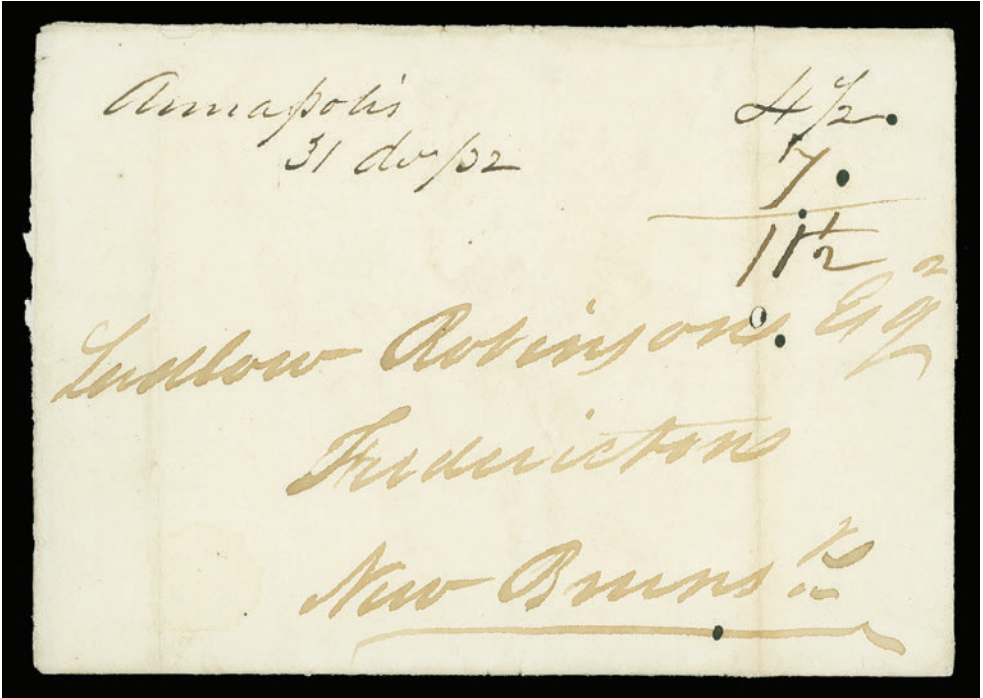 Annapolis 4½
31 de /32 7
11½
Ludlow Robinson Esqr
Fredericton
New Brunsk